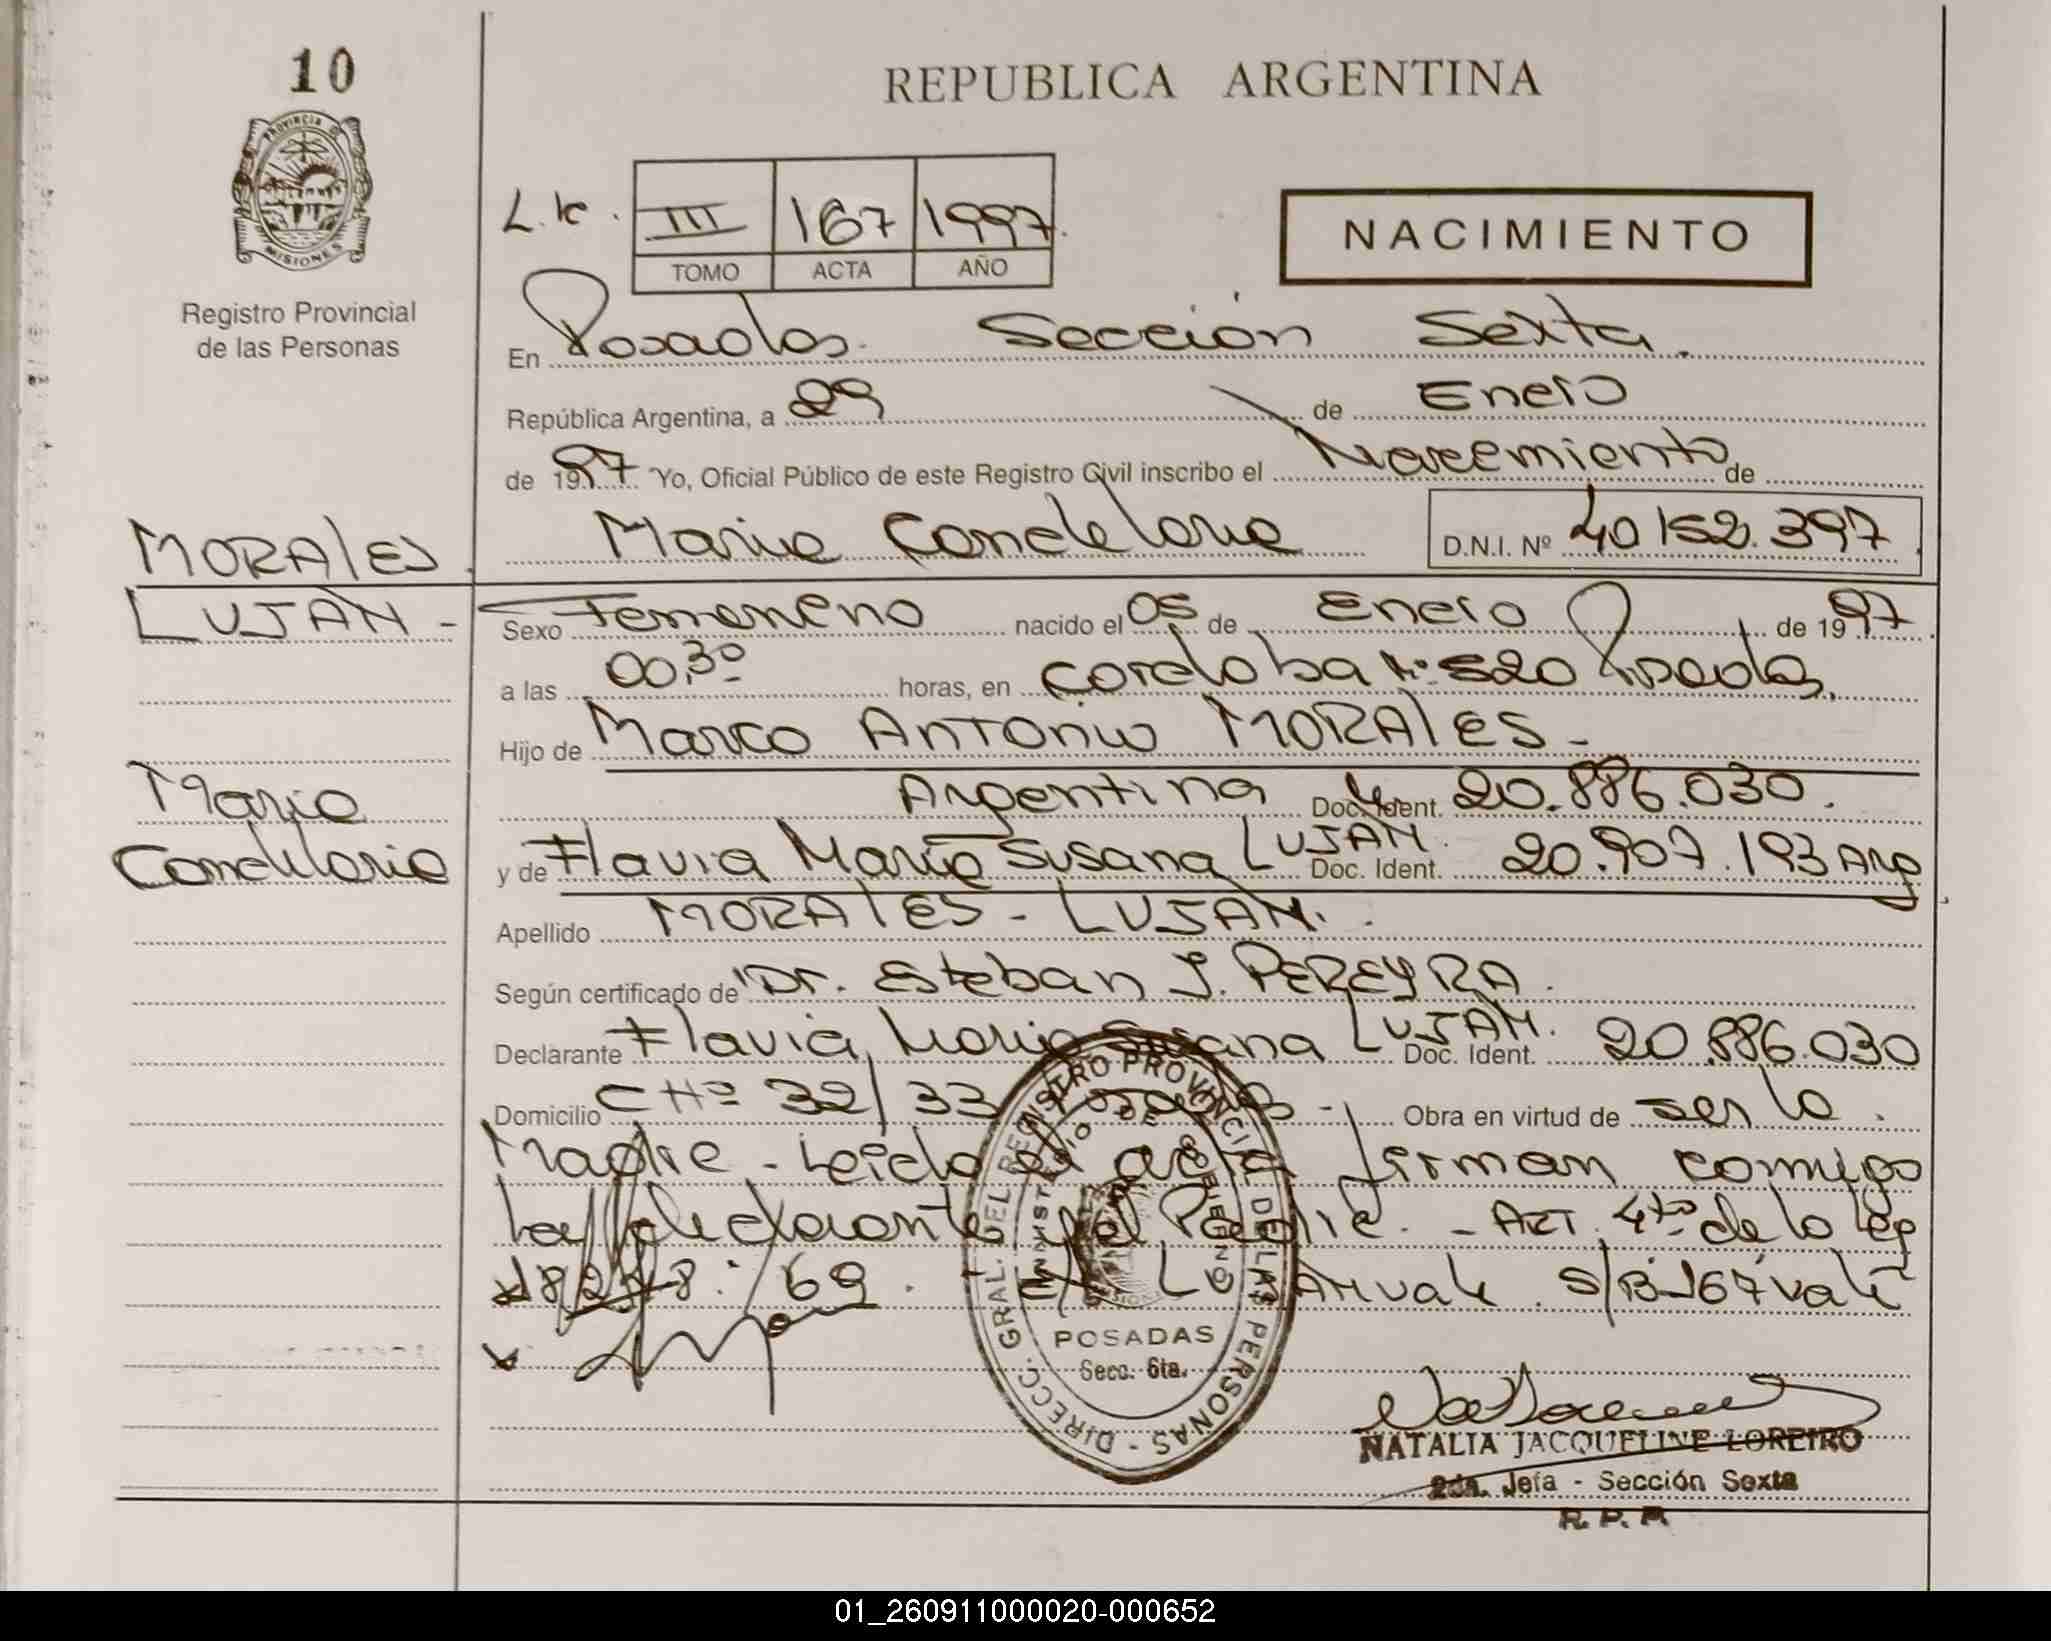 10
REPUBLICA ARGENTINA
PROVINCIA DE MISIONES
Registro Provincial
de las Personas
III 167 1997
TOMO ACTA AÑO
NACIMIENTO
En Posadas Sección Sexta.
República Argentina, a 29 de Enero
de 1997 Yo, Oficial Público de este Registro Civil inscribo el Nacimiento de
Maria Candelaria D.N.I. Nº 40152.397
MORALES
LUJAN -
Maria
Candelaria
Sexo Femenino nacido el 05 de Enero de 1997
a las 00,30 horas, en Cordoba Nº 520 Posadas,
Hijo de Marco Antonio MORALES -
Argentina Doc. Ident. 20.886.030.
y de Flavia Maria Susana LUJAN. Doc. Ident. 20.907.193 Arg
Apellido MORALES - LUJAN.
Según certificado de Dr. Esteban J. PEREYRA.
Declarante Flavia Maria Susana LUJAN. Doc. Ident. 20.886.030
Domicilio CH Nº 32/33 Posadas - Obra en virtud de ser la
Madre - Leida el acta firman conmigo
la declarante y el Padre. - ART. 4to de la Ley
18248/69. LUJAN vale. S/B 167 vale
DIRECC. GRAL. DEL REGISTRO PROVINCIAL DE LAS PERSONAS
MINISTERIO DE GOBIERNO
POSADAS
Secc. 6ta.
NATALIA JACQUELINE LOREIRO
2da. Jefa - Sección Sexta
R. P. P.
01_260911000020-000652